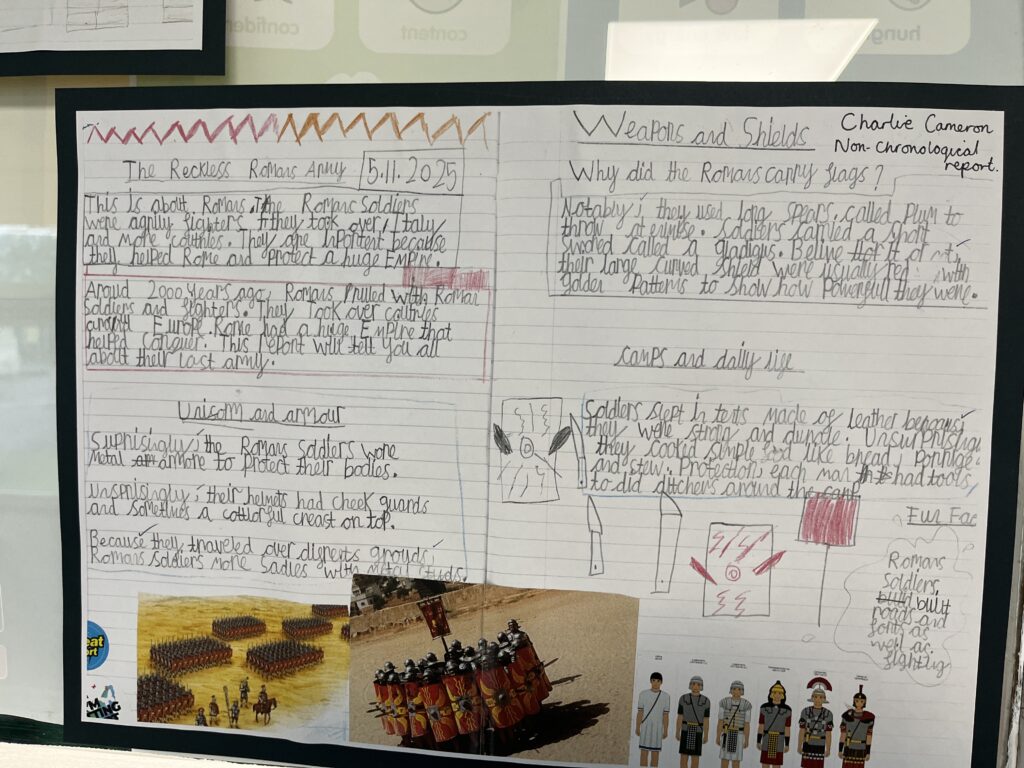 The Reckless Romans Army 5.11.2025
This is about Romans. The Romans Soldiers
were agnily fighters they took over, Italy
and more coutnies. They are inportent because
they helped Rome and protect a huge Empire.
Aroud 2000 years ago, Romans Pruled with Roman
Soldiers and fighters. They took over coutnies
around Europe. Rome had a huge Empire that
helped conquer. This report will tell you all
about their Last army.
Unisom and armour
Suprisingly, the Romans Soldiers wore
metal armore to protect their bodies.
unsprisingly, their helmets had cheek guards
and sometiues a coulorful creast on top.
Because they traveled over difrents grouds,
Romans soldiers more Sadles with metal studs.
Weapons and Shields
Why did the Romans carry flags?
Notably, they used long spears, called Plum to
throw at enimise. soldiers carived a short
swored called a gladious. Belive it or not,
their large curved shield were usually red with
golden Patterns to show how Powerful they were.
camps and daily life
Soldiers slept in tents made of leather becaus,
they were strong and durole. Unsurprisingly
they cooked simple food like bread, Porrige,
and stew. Protection, each man had tools
to did ditchers around the camp.
Fun Fac
Romans
Soldiers
build built
roads and
forts as
well as
fightig
Charlie Cameron
Non-Chronological
report.
confiden
content
hung
eat
ort